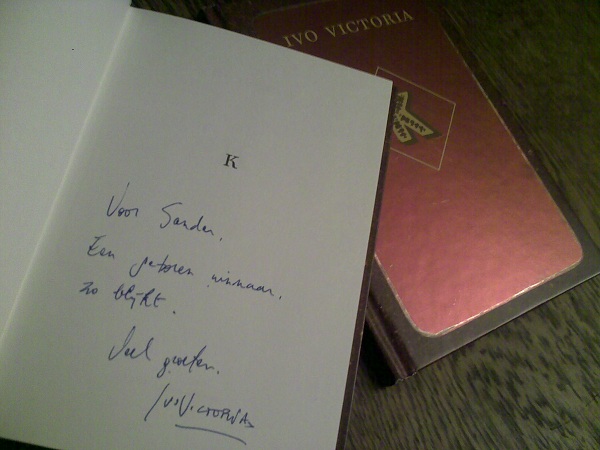 K
Voor Sander.
Een geboren winnaar,
zo blijkt.
Veel groeten.
Ivo Victoria
IVO VICTORIA